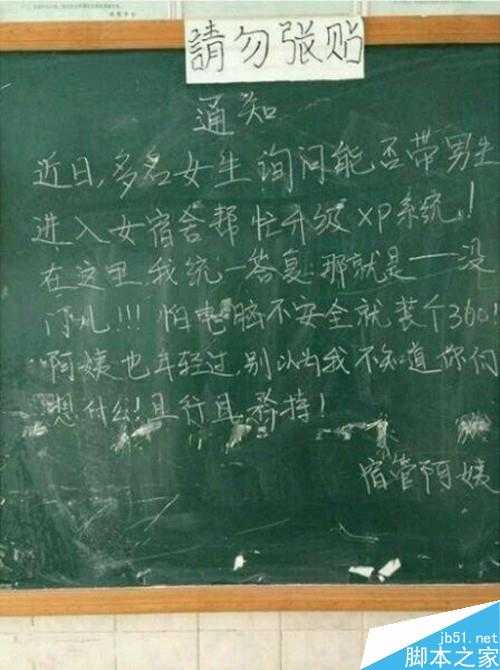 請勿张贴
通知
近日,多名女生询问能否带男生
进入女宿舍帮忙升级xp系统,!
在这里我统一答复:那就是——没
门儿!!!怕电脑不安全就装个360!
阿姨也年轻过,别以为我不知道你们
想什么!且行且矜持!
宿管阿姨
jb51.net
脚本之家